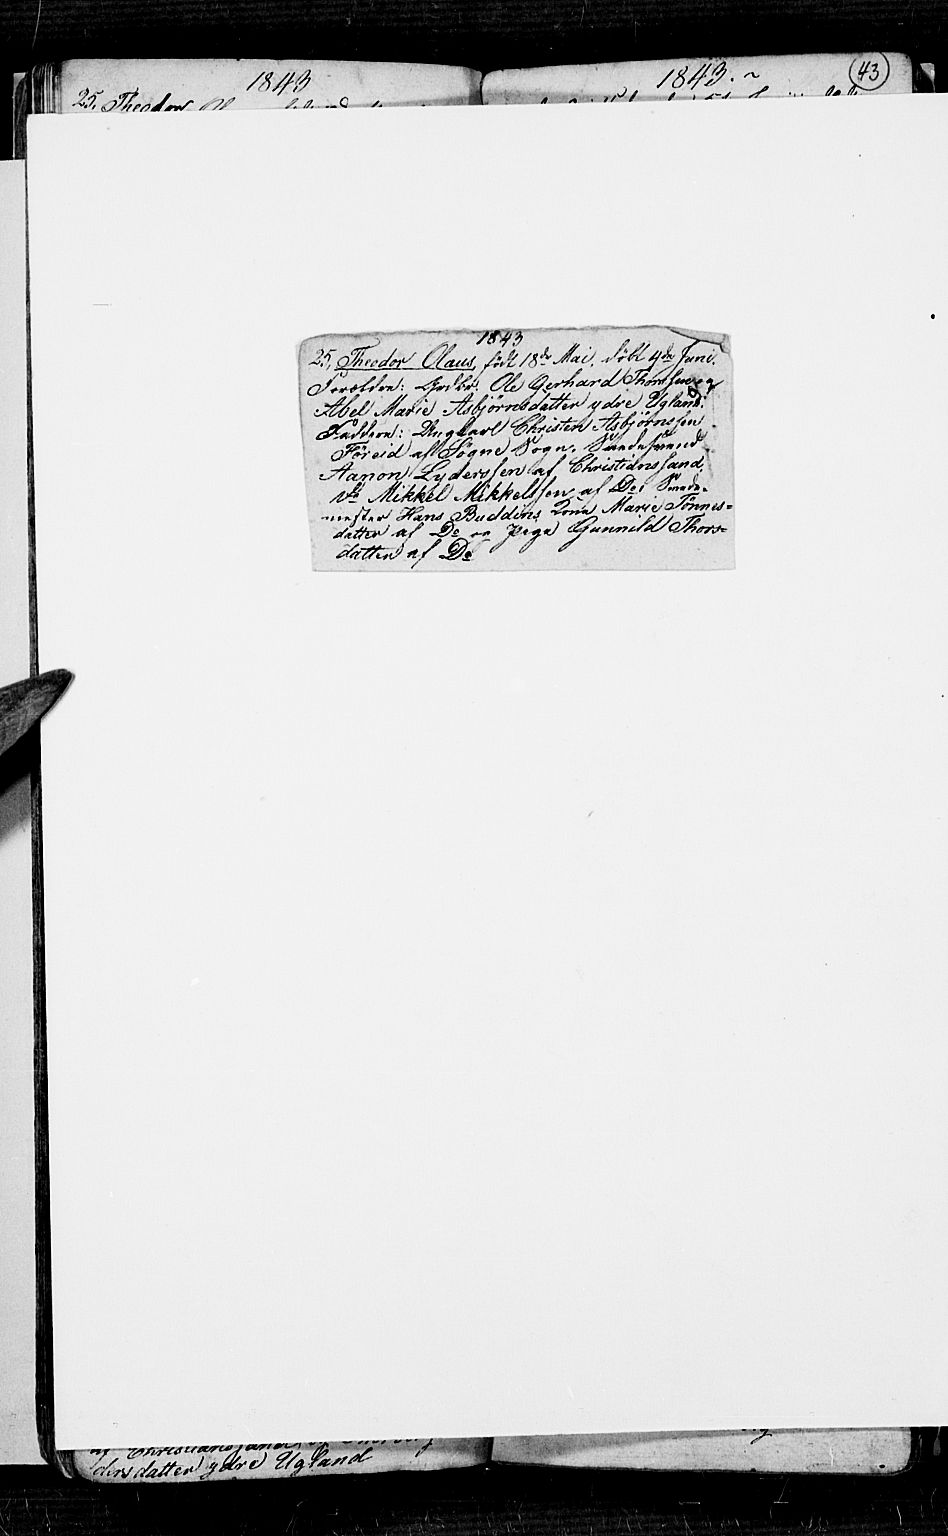 1843
25, Theodor
1843.
43
1843
25, Theodor Olaus, födt 18de Mai, döbt 4de Juni.
Forældre: Grdbr. Ole Gerhard Thomsen og
Abel Marie Asbjörnsdatter ydre Ugland.
Faddere: Ungkarl Christen Asbjörnssen
Föreid af Søgne Sogn, Svend
Aanon Lyderssen af Christianssand,
do Mikkel Mikkelssen af Do,
mester Hans Buddins Kone Marie Tönnes=
datter af Do og Pige Gunnild Thors=
datter af Do
af Christianssand,
dersdatter ydre Ugland